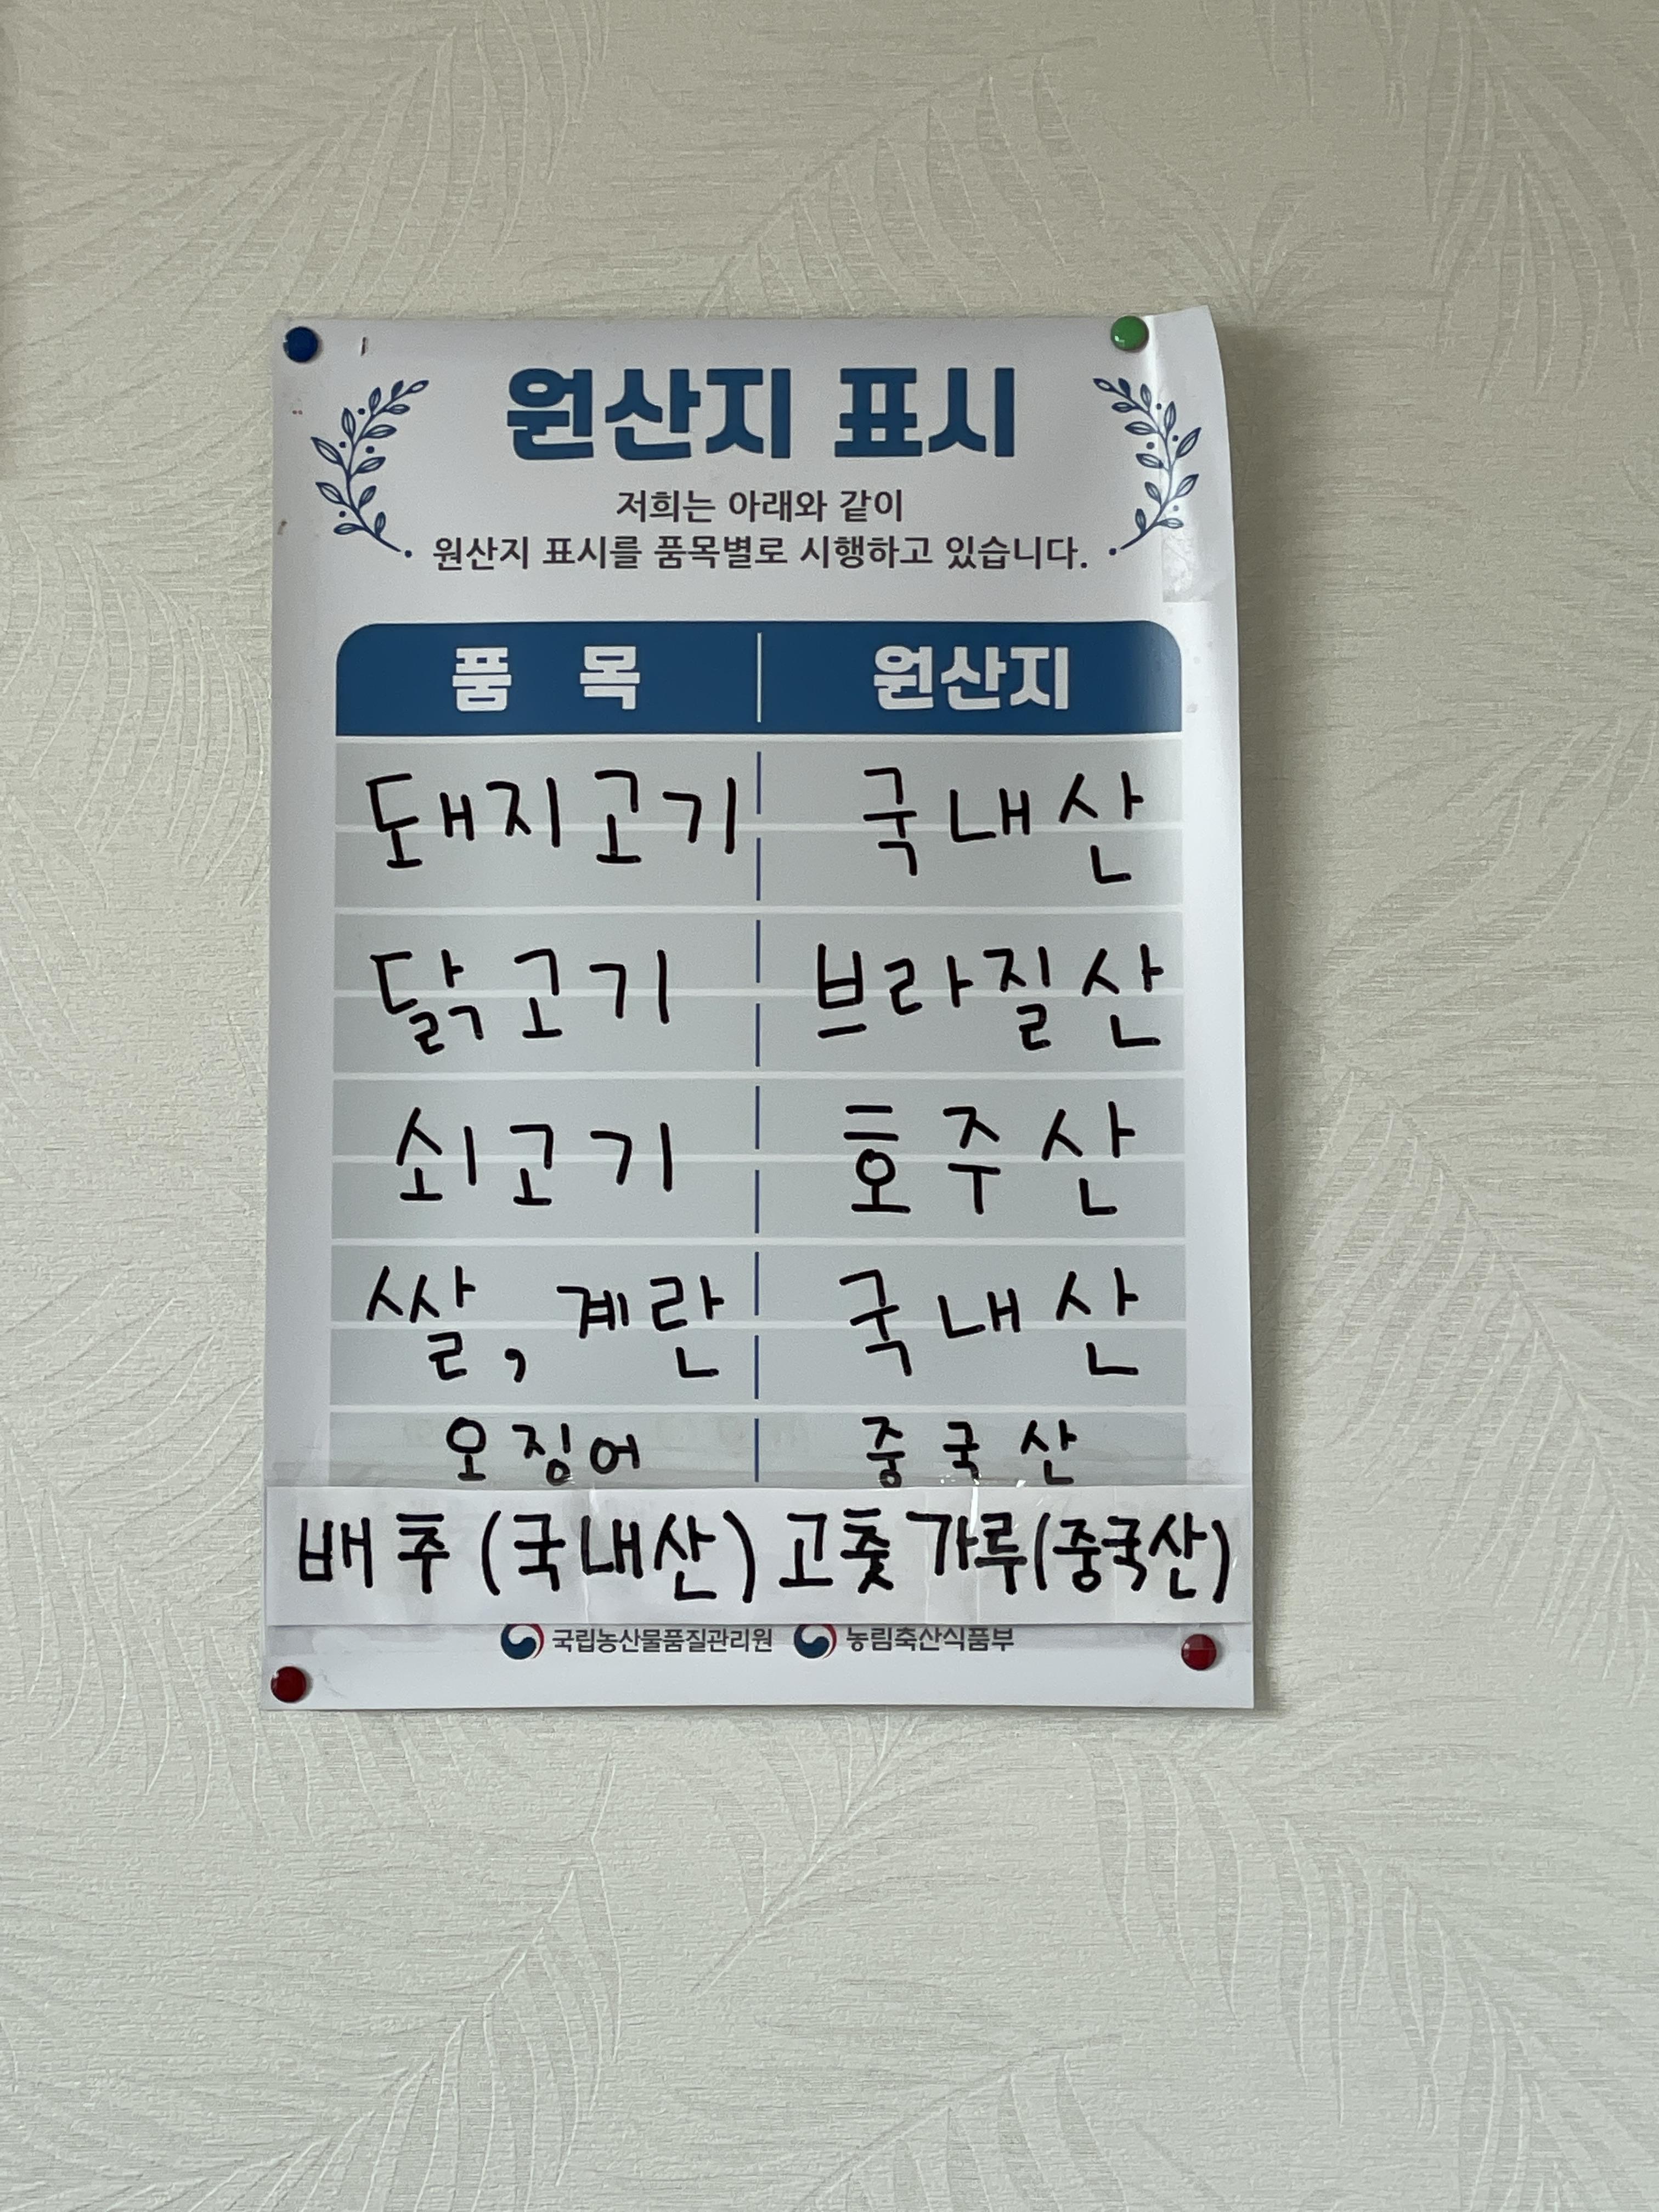 원산지 표시
저희는 아래와 같이
원산지 표시를 품목별로 시행하고 있습니다.
품 목 원산지
돼지고기 국내산
닭고기 브라질산
쇠고기 호주산
쌀, 계란 국내산
오징어 중국산
배추(국내산) 고춧가루(중국산)
국립농산물품질관리원 농림축산식품부